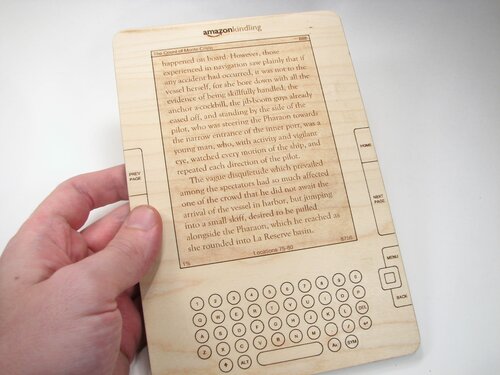 amazonkindling
The Count of Monte Cristo
happened on board. However, those
experienced in navigation saw plainly that if
any accident had occurred, it was not to the
vessel herself, for she bore down with all the
evidence of being skillfully handled, the
anchor a-cockbill, the jib-boom guys already
eased off, and standing by the side of the
pilot, who was steering the Pharaon towards
the narrow entrance of the inner port, was a
young man, who, with activity and vigilant
eye, watched every motion of the ship, and
repeated each direction of the pilot.
The vague disquietude which prevailed
among the spectators had so much affected
one of the crowd that he did not await the
arrival of the vessel in harbor, but jumping
into a small skiff, desired to be pulled
alongside the Pharaon, which he reached as
she rounded into La Reserve basin.
1% Locations 75-80 8756
PREV
PAGE
HOME
NEXT
PAGE
MENU
BACK
1 2 3 4 5 6 7 8 9 0
Q W E R T Y U I O P
A S D F G H J K L DEL
Z X C V B N M .
ALT Aa SYM